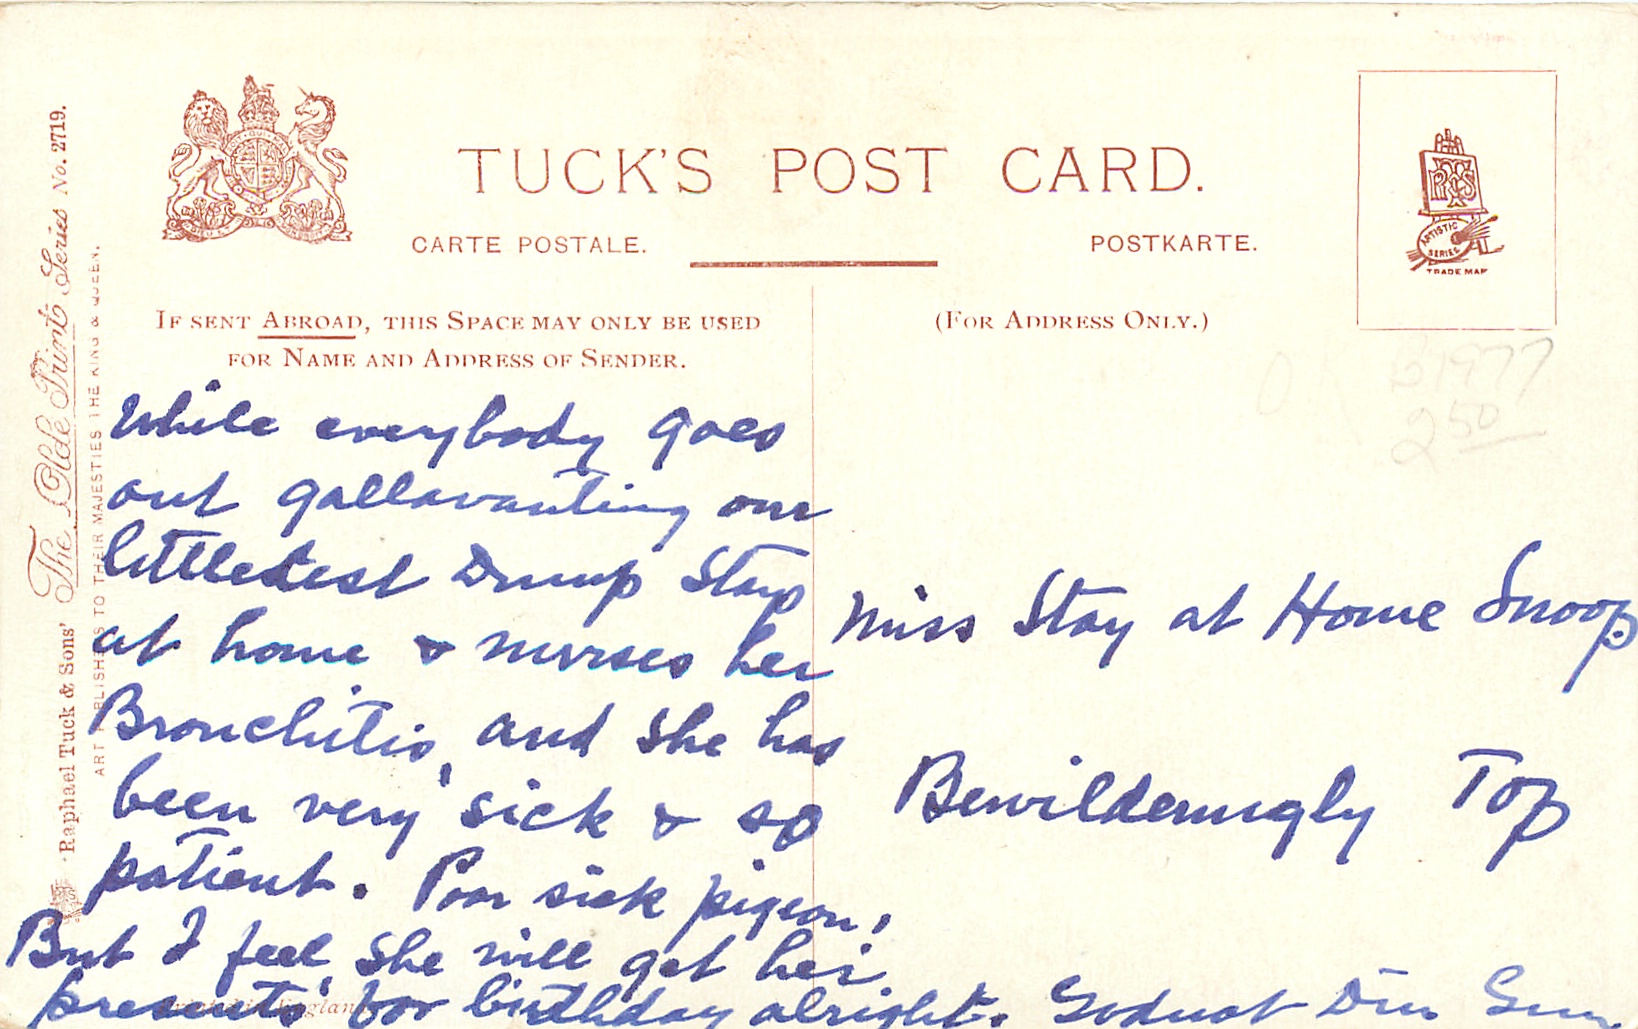 TUCK'S POST CARD.
CARTE POSTALE.
POSTKARTE.
IF SENT ABROAD, THIS SPACE MAY ONLY BE USED
FOR NAME AND ADDRESS OF SENDER.
(FOR ADDRESS ONLY.)
RTS
ARTISTIC
SERIES
TRADE MAR
B1977
2 50
Raphael Tuck & Sons' The Olde Print Series No. 2719.
ART PUBLISHERS TO THEIR MAJESTIES THE KING & QUEEN.
While everybody goes
out gallavanting our
littlest Stay
at home & nurses her
Bronchitis, and she has
been very sick & so
patient. Poor sick pigeon!
But I feel she will get her
presents for birthday alright.
Miss Stay at Home Snoop
Bewilderingly Top